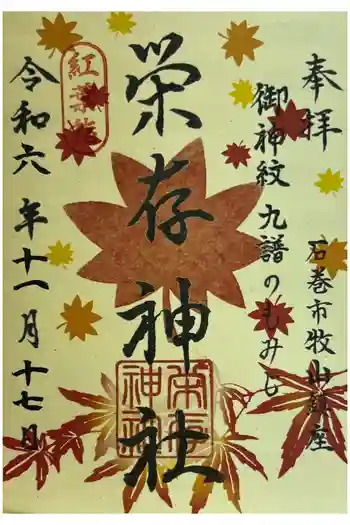 奉拝
石巻市牧山鎮座
御神紋 九譜のもみじ
栄存神社
令和六年十一月十七日